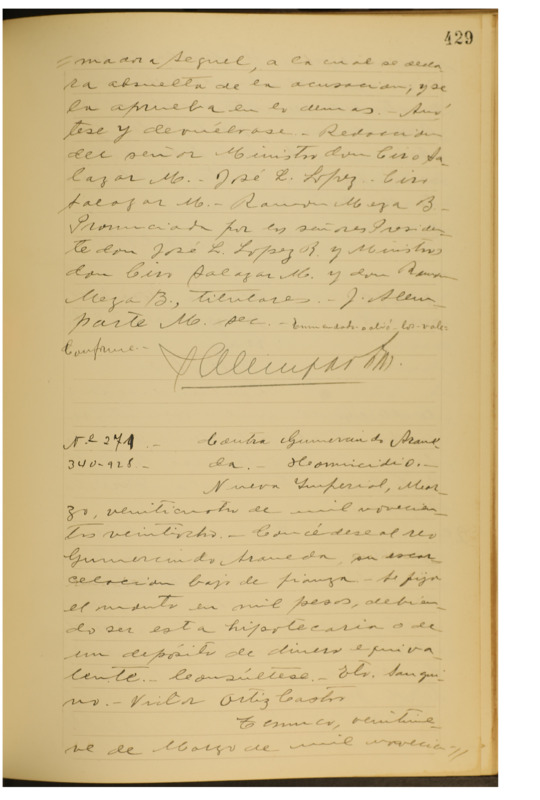 429
madora Seguel, a la cual se decla
ra absuelta de la acusacion, y se
la aprueba en lo demas. - Anó
tese y devuélvase. - Redaccion
del señor Ministro don Ciro Sa
lazar M. - José L. Lopez. - Ciro
Salazar M. - Ramon Meza B -
Pronunciada por los señores Presiden-
te don José L. Lopez R. y Ministros
don Ciro Salazar M. y don Ramon
Meza B., titulares. - J. Alem-
parte M. sec. - Enmendado vale
Conforme. -
JAlemparte M.
N.º 271 . - Contra Gumercindo Arane
340-928 . - da. - Homicidio. -
Nueva Imperial, Mar-
zo, veinticuatro de mil novecien-
tos veintiocho. - Concédese al reo
Gumercindo Araneda, su excar
celacion bajo de fianza. - Se fija
el monto en mil pesos, debien-
do ser esta hipotecaria o de
un depósito de dinero equiva
lente. - Consúltese. - Eto. Sanqui-
no. - Victor Ortiz Castro
Temuco, veintinue-
ve de Marzo de mil novecien-